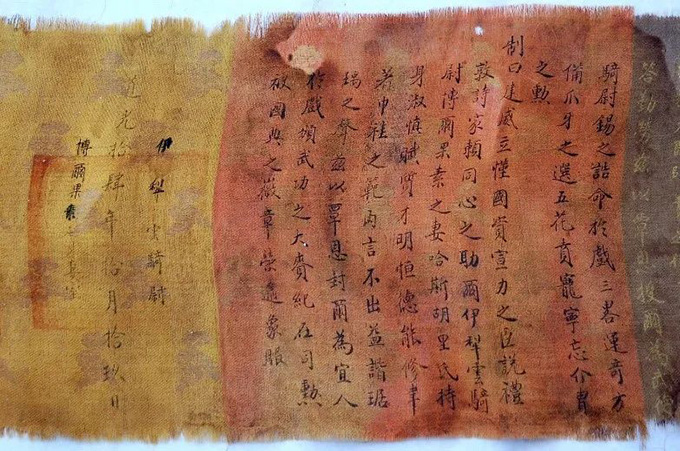 答勤勞茲以覃恩授爾為武
騎尉錫之誥命於戲三畧運奇方
備爪牙之選五花賁寵寧忘介冑
之勳
制曰建威立懂國賞宣力之臣說禮
敦詩家賴同心之助爾伊犁雲騎
尉博爾果素之妻哈斯胡里氏持
身淑慎賦質才明恒德能修聿
著巾之範內言不出益諧琚
瑀之聲茲以覃恩封爾為宜人
於戲頌武功之大賚紀在司勲
被國典之徽章榮邀象服
伊犁雲騎尉
道光拾肆年拾月拾玖日
博爾果素